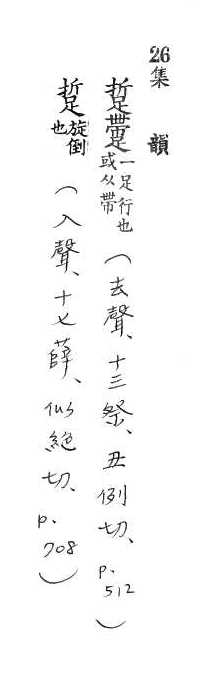 26集韻
踅⿱帶足一足行也或从帶（去聲、十三祭、丑例切、p.512）
踅旋倒也（入聲、十七薛、似絶切、p.708）